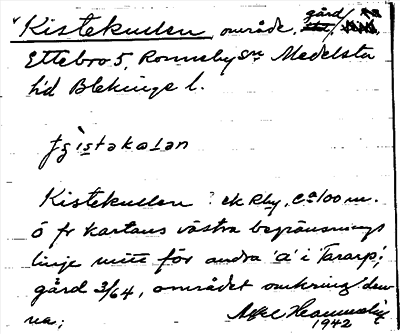 Kistekullen område, gård/
Ettebro 5, Ronneby sn Medelsta
hd Blekinge l.
Kistekullen ? ek Rby, ca 100 m.
ö fr kartans västra begränsnings
linje mitt för andra 'a' i Tararp;
gård 3/64, området omkring den
na;
1942